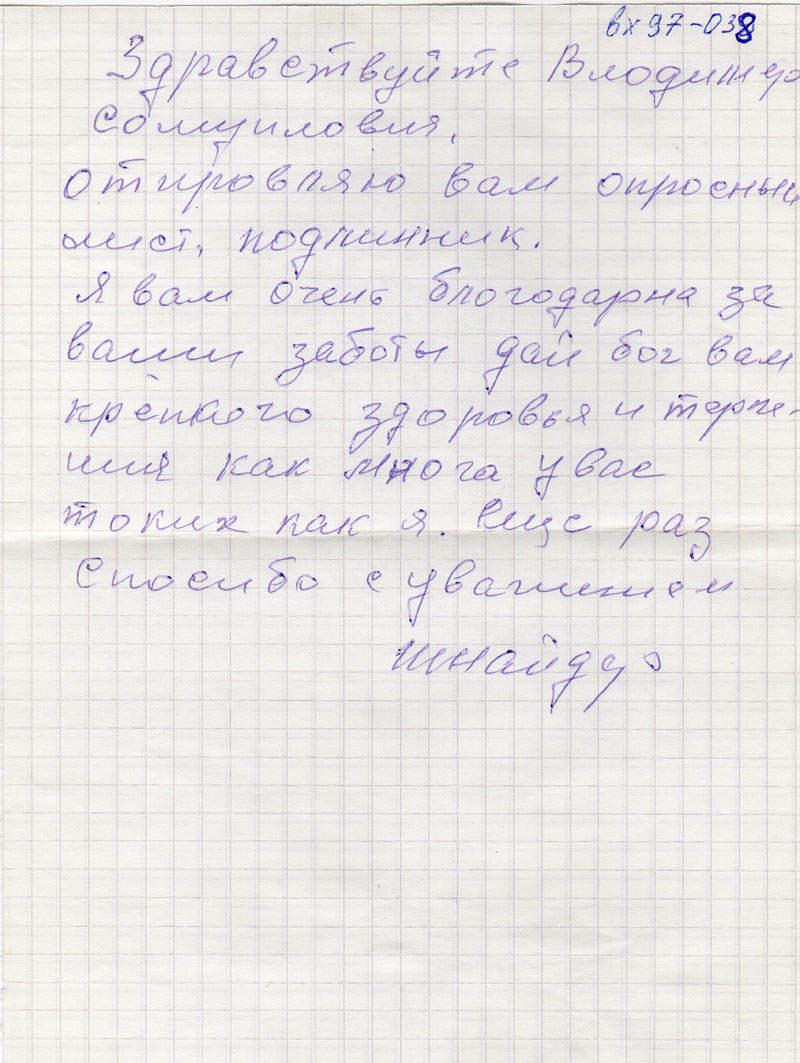 вх 97-038
Здравствуйте Владимир
Самуилович,
отправляю вам опросный
лист, подлинник.
Я вам очень благодарна за
ваши заботы дай бог вам
крепкого здоровья и терпе-
ния как многа у вас
таких как я. Еще раз
Спасибо с уважинием
Шнайдер